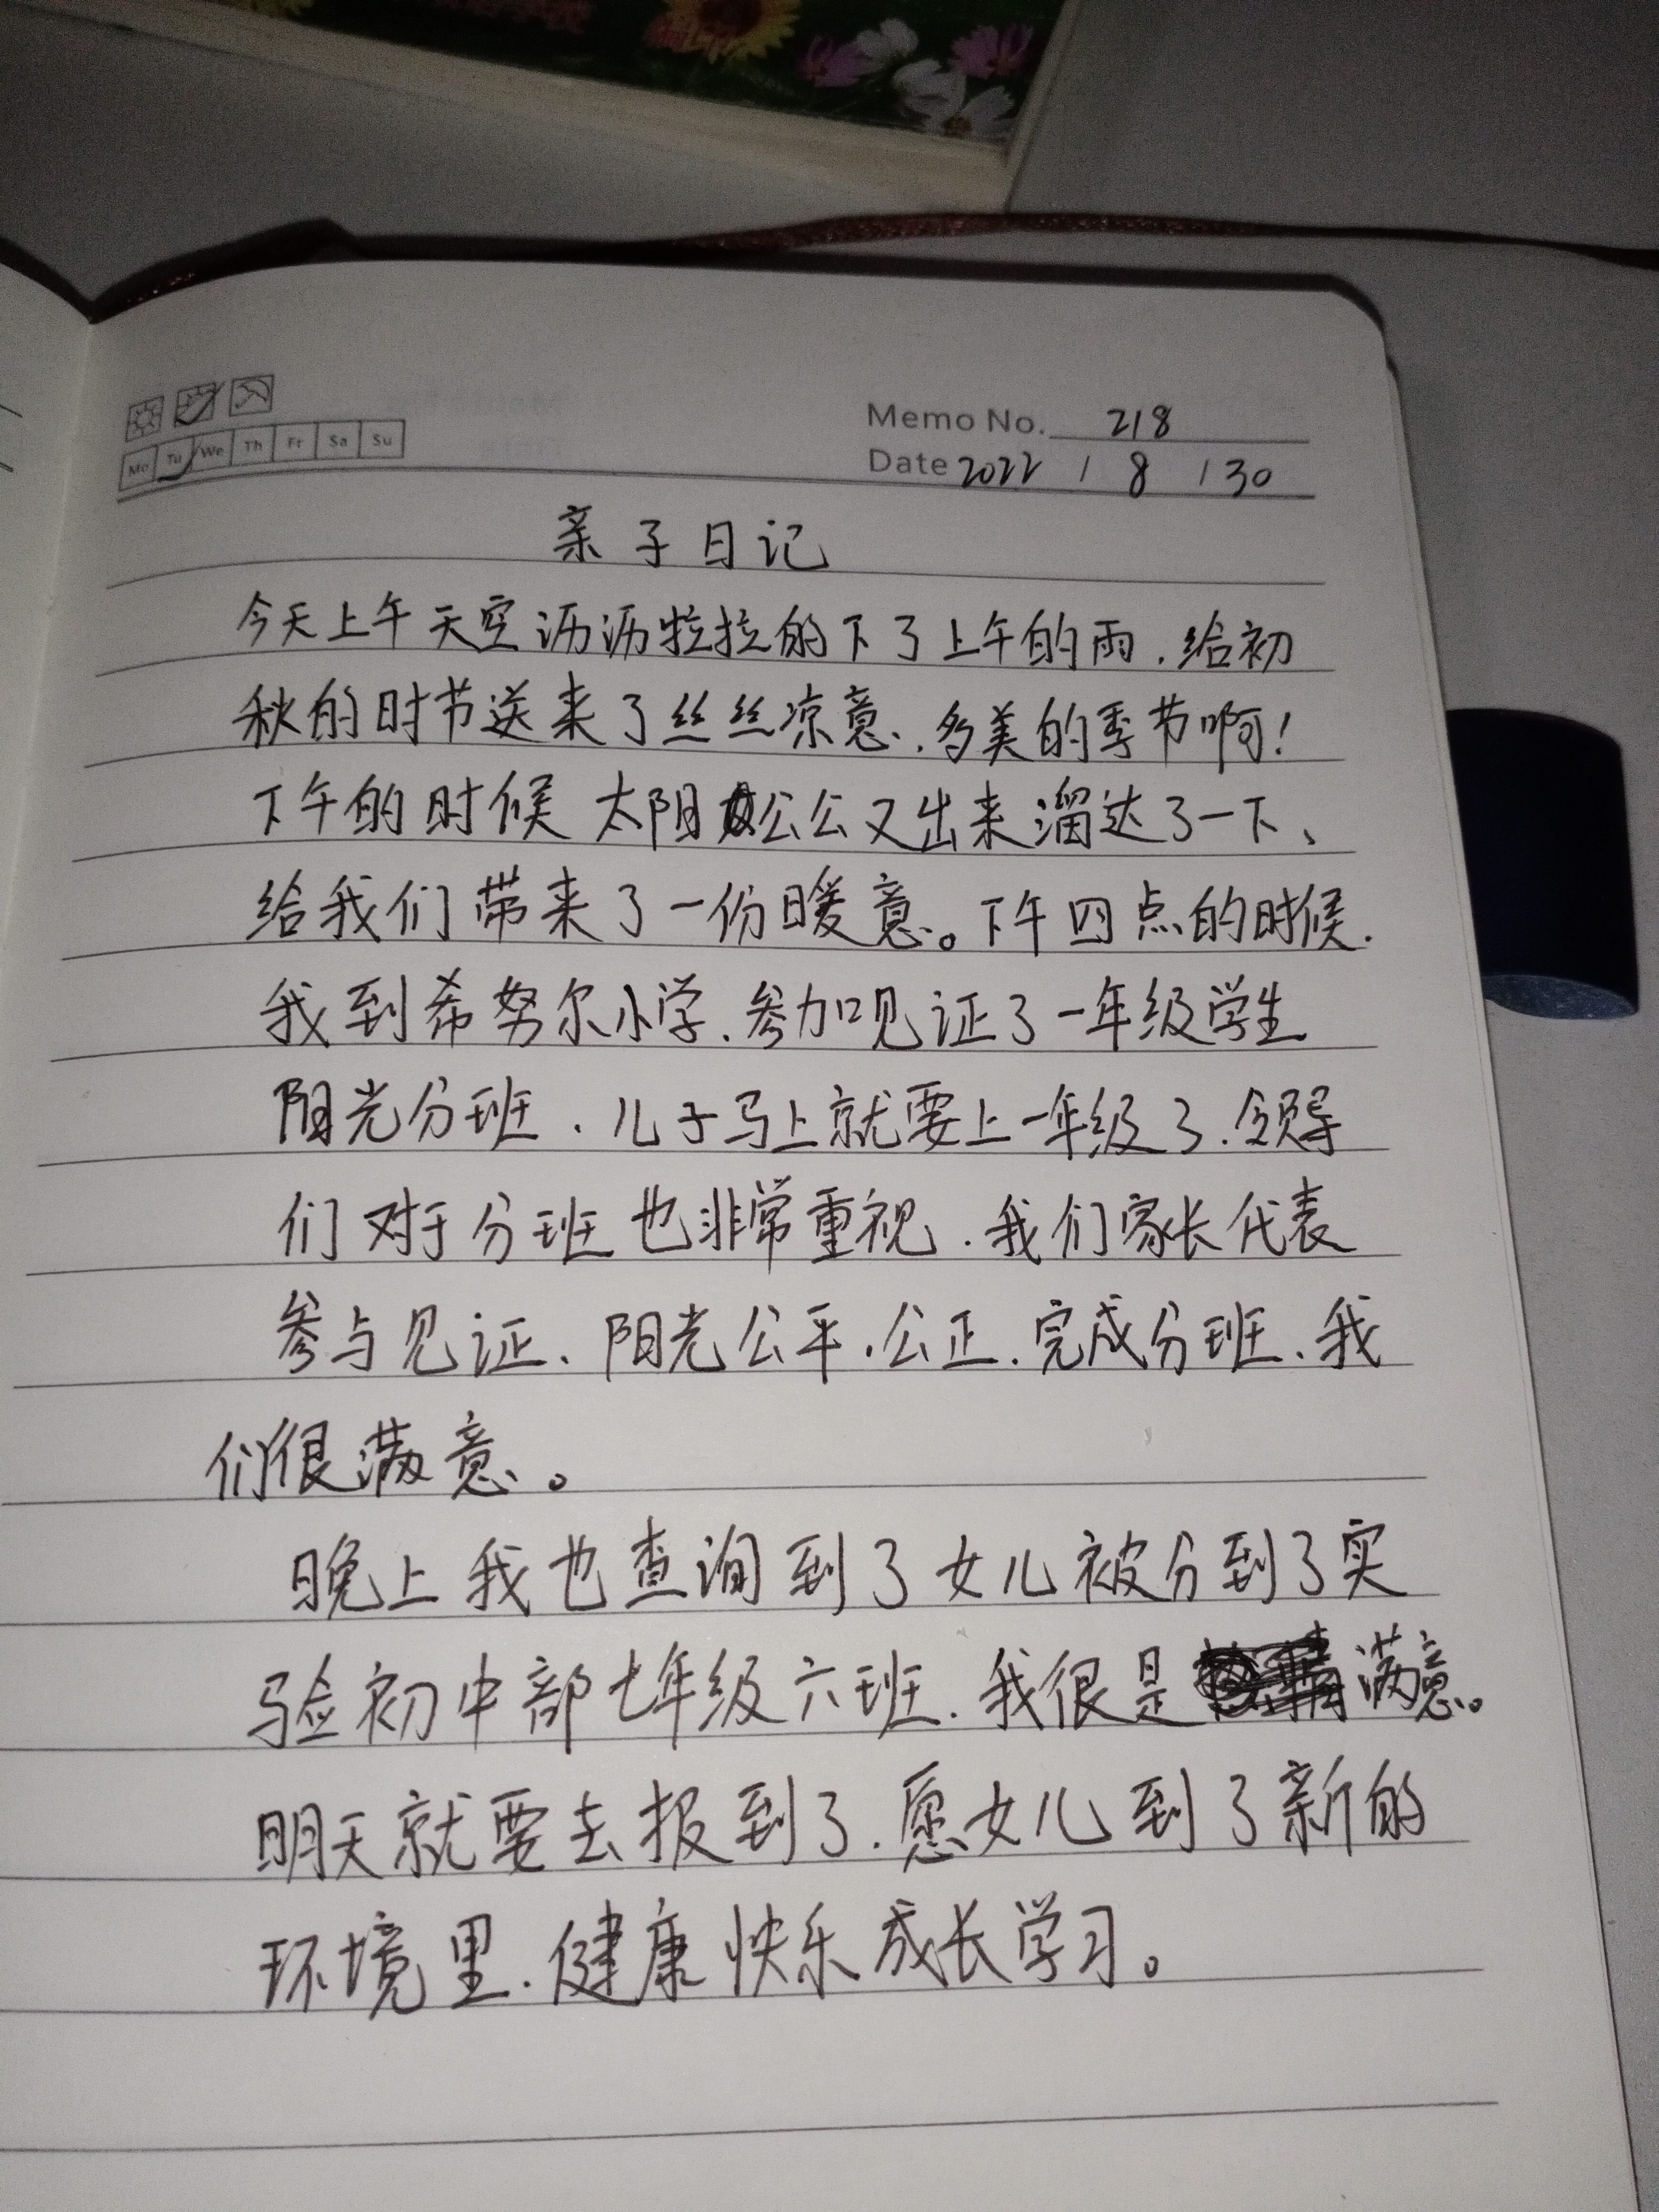 Memo No. 218
Mo Tu We Th Fr Sa Su
Date 2022 / 8 / 30
亲子日记
今天上午天空沥沥拉拉的下了上午的雨，给初
秋的时节送来了丝丝凉意，多美的季节啊！
下午的时候太阳公公又出来溜达了一下、
给我们带来了一份暖意。下午四点的时候，
我到希努尔小学，参加见证了一年级学生
阳光分班，儿子马上就要上一年级了，领导
们对于分班也非常重视，我们家长代表
参与见证、阳光公平，公正，完成分班、我
们很满意。
晚上我也查询到了女儿被分到了实
验初中部七年级六班，我很是满意。
明天就要去报到了，愿女儿到了新的
环境里，健康快乐成长学习。